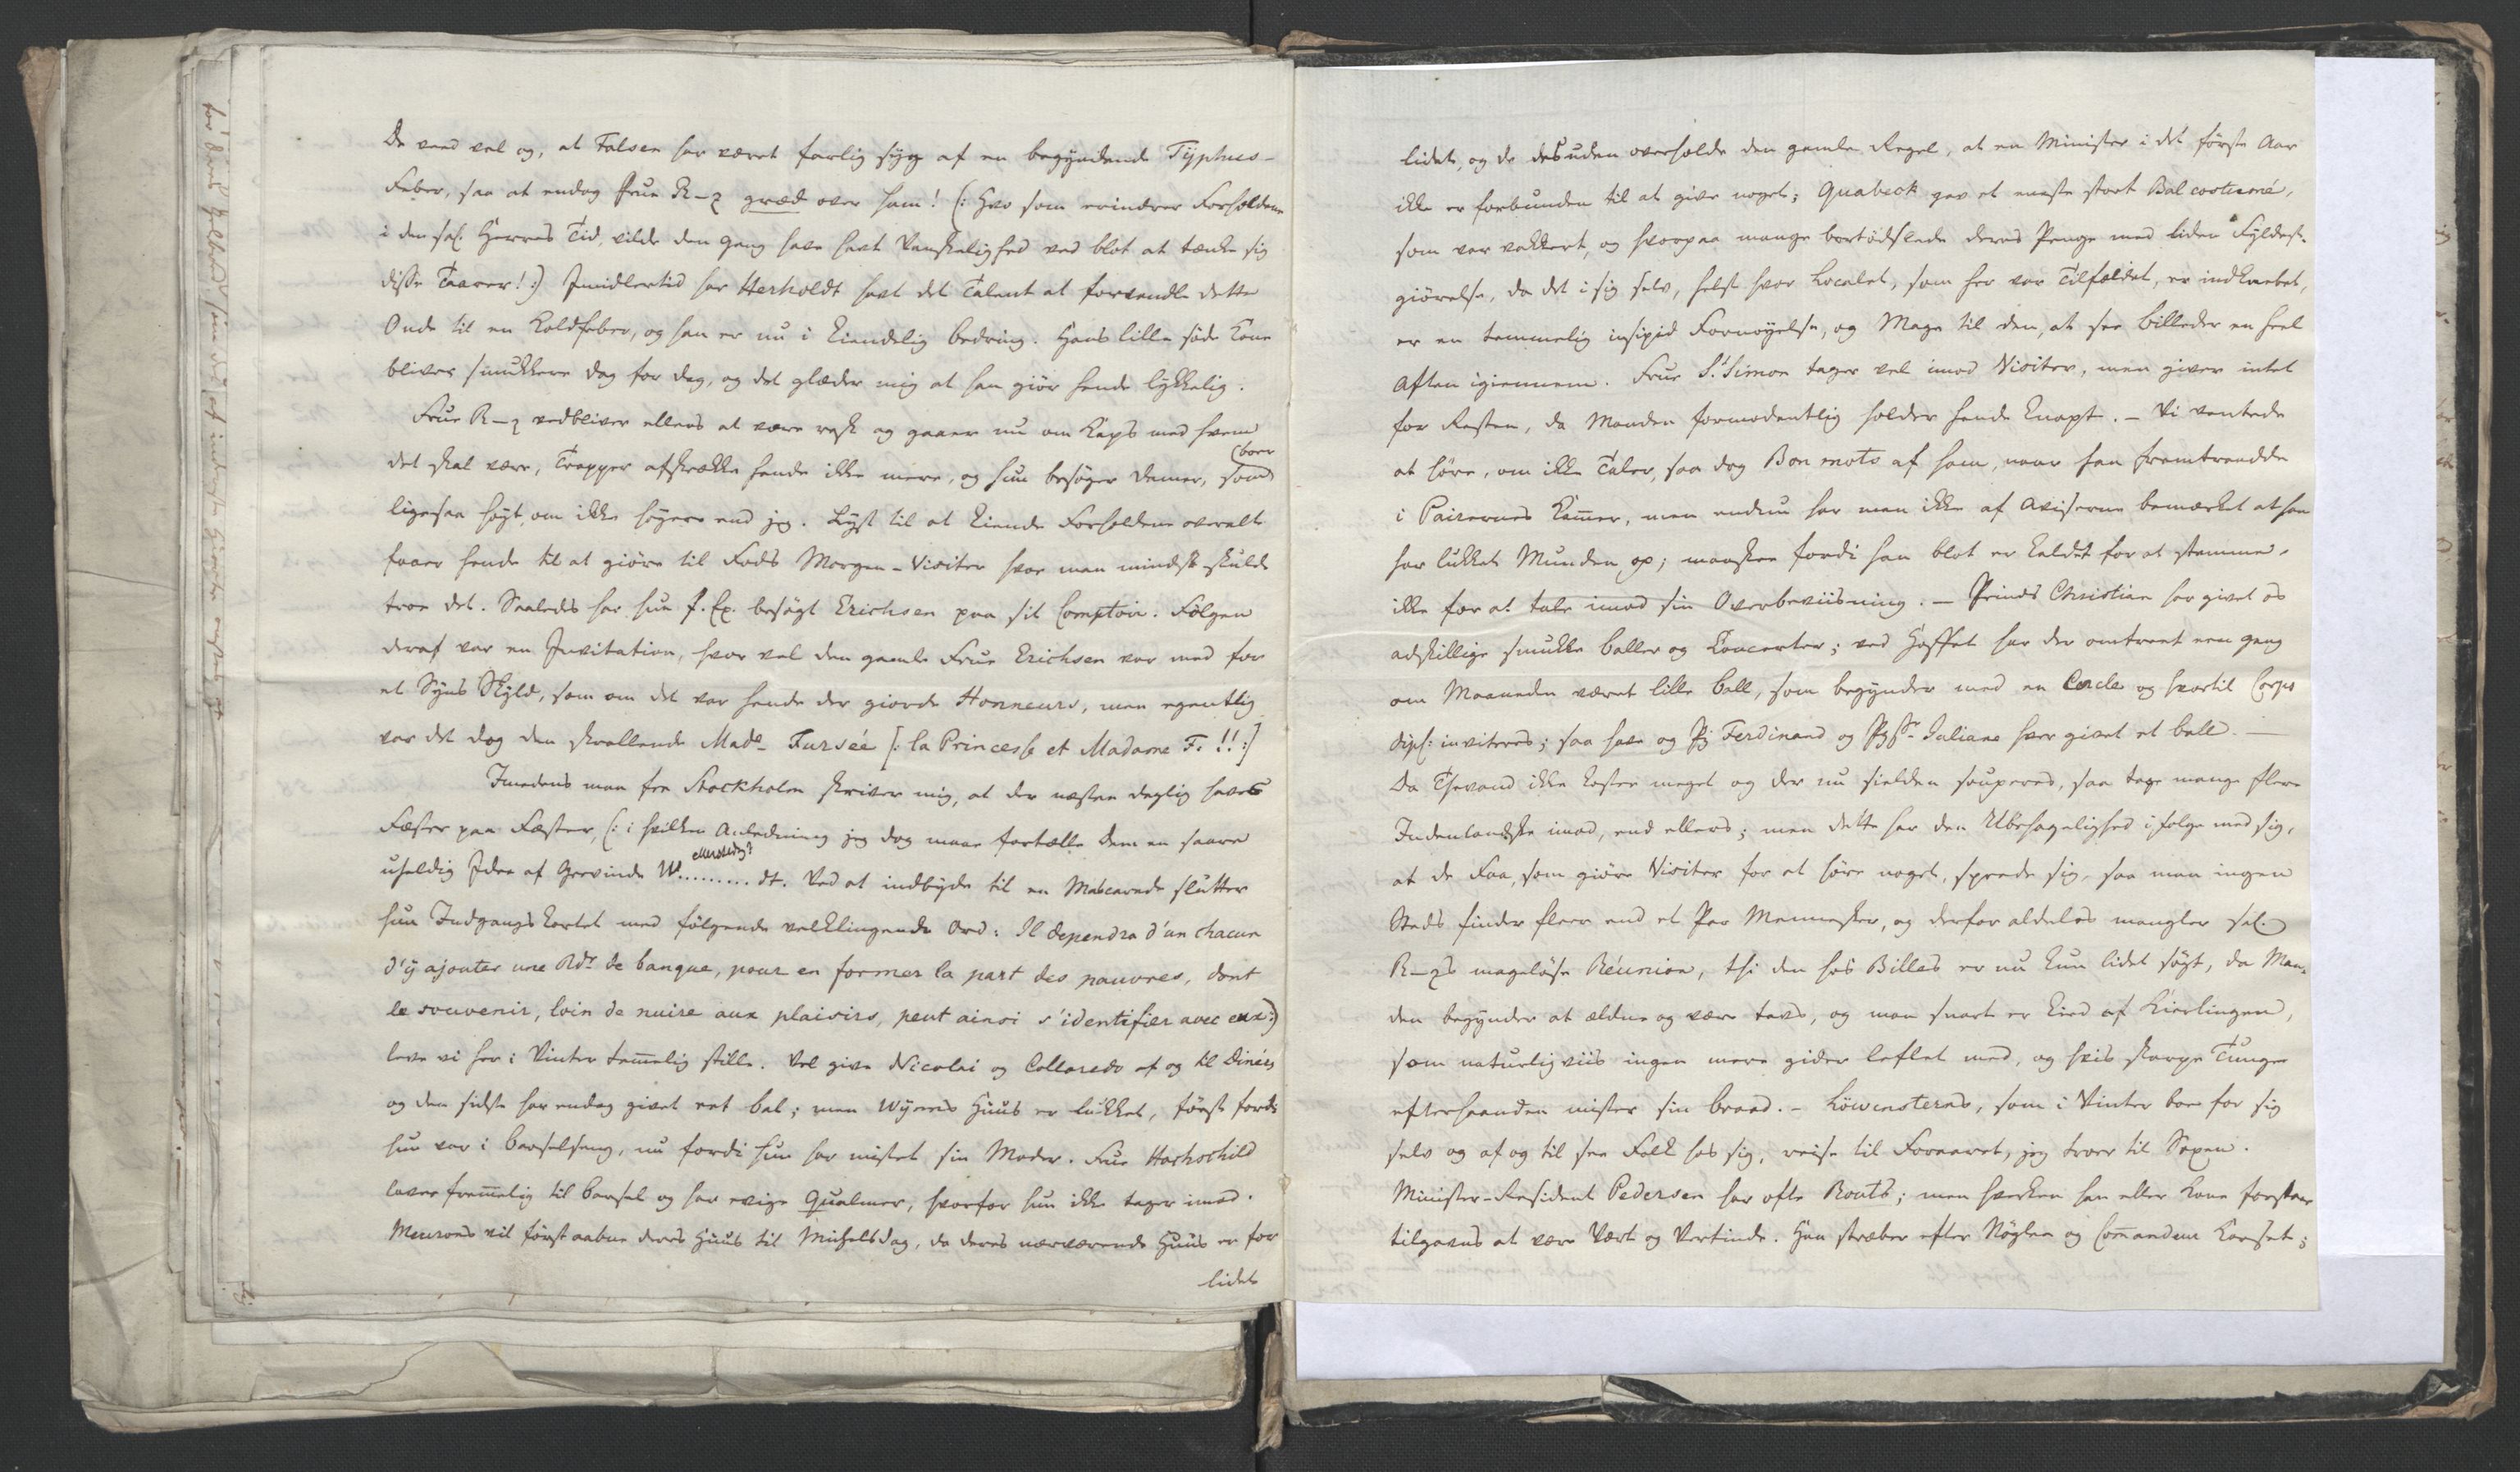 De veed vel og, at Falsen har været farlig syg af en begyndende Typhus-
Feber, saa at endog Frue R–z græd over ham! (: Hvo som erindrer Forholdene
i den sal. Herres Tid, vilde den Gang have havt Vanskelighed ved blot at tænke sig
disse Taarer! :) Imidlertid har Herholdt havt det Talent at forvandle dette
Onde til en Koldfeber, og han er nu i kiendelig Bedring. Hans lille søde Kone
bliver smukkere Dag for Dag, og det glæder mig at han giør hende lykkelig.
Frue R–z vedbliver ellers at være rask og gaaer nu om Kaps med hvem
det skal være, Trapper afskrække hende ikke mere, og hun besøger Damer, som (boer
ligesaa høyt, om ikke høyere end jeg. Lyst til at kiende Forholdene overalt
faaer hende til at giøre til Fods Morgen-Visiter hvor man mindst skulde
troe det. Saaledes har hun f. Ex. besøgt Erichsen paa sit Comptoir. Følgen
deraf var en Invitation, hvor vel den gamle Frue Erichsen var med for
et Syns Skyld, som om det var hende der giorde Honneurs, men egentlig
var det dog den skrallende Made Fursée [: la Princesse et Madame F. !! :]
Imedens man fra Stockholm skriver mig, at der næsten daglig haves
Fester paa Fester, (: i hvilken Anledning jeg dog maae fortælle Dem en saare
uheldig Idee af Grevinde W.........dt. Ved at indbyde til en Mascarade slutter
hun Indgangskortet med følgende velklingende Ord: Il dependra d'un chacun
d'y ajouter une Rdr de banque, pour en former la part des pauvres, dont
le souvenir, loin de nuire aux plaisirs, peut ainsi s'identifier avec eux :)
leve vi her i Vinter temelig stille. Vel give Nicolai og Colloredo af og til Dinéer
og den sidste har endog givet eet Bal; men Wynns Huus er lukket, først fordi
hun var i Barselseng, nu fordi hun har mistet sin Moder. Frue Hochschild
laver fremelig til Barsel og har evige Qualmer, hvorfor hun ikke tager imod.
Meurons vil først aabne deres Huus til Michelsdag, da deres nærværende Huus er for
lidet
lidet, og de desuden overholde den gamle Regel, at en Minister i det første Aar
ikke er forbunden til at give noget; Quabeck gav et eneste stort Bal costumé,
som var vakkert, og hvorpaa mange bortødslede deres Penge med liden Fyldest-
giørelse, da det i sig selv, helst hvor Localet, som her var Tilfældet, er indknebet,
er en temmelig insipid Fornøyelse, og Mage til den, at see Billeder en heel
Aften igiennem. Frue St. Simon tager vel imod Visiter, men giver intet
for Resten, da Manden formodentlig holder hende knapt. – Vi ventede
at høre, om ikke Taler, saa dog Bon mots af ham, naar han fremtraadde
i Pairernes Kamer, men endnu har man ikke af Aviserne bemærket at han
har lukket Munden op; maaskee fordi han blot er kaldet for at stemme,
ikke for at tale imod sin Overbeviisning. – Prinds Christian har givet os
adskillige smukke Baller og Concerter; ved Hoffet har der omtrent een Gang
om Maaneden været lille Ball, som begynder med en Cercle og hvortil Corps
dipl: inviteres; saa have og Pz Ferdinand og Pzsse Juliane hver givet et Ball. –
Da Thevand ikke koster meget og der nu sielden souperes, saa tage mange flere
Indenlandske imod, end ellers; men dette har den Ubehagelighed i følge med sig,
at de Faa, som giøre Visiter for at høre noget, sprede sig, saa man ingen
Steds finder flere end et Par Mennesker, og derfor aldeles mangler sal.
R–zs mageløse Réunion, thi den hos Billes er nu kun lidet søgt, da Man-
den begynder at ældes og være taus, og man snart er kied af Kierlingen,
som naturligviis ingen mere gider leflet med, og hvis skarpe Tunge
efterhaanden mister sin Braad. – Löwensterns, som i Vinter boe for sig
selv og af og til see Folk hos sig, reise til Foraaret, jeg troer til Sexen.
Minister-Resident Pedersen har ofte Routs; men hverken han eller Kone forstaaer
tilgavns at være Vært og Vertinde. Han stræber efter Nøglen og Comandeur Korset;